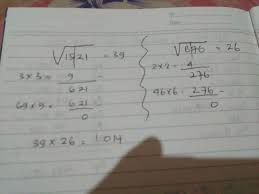 √1521 = 39
3×3= 9
621
69×9= 621
0
√676 = 26
2×2= 4
276
46×6= 276
0
39×26 = 1014